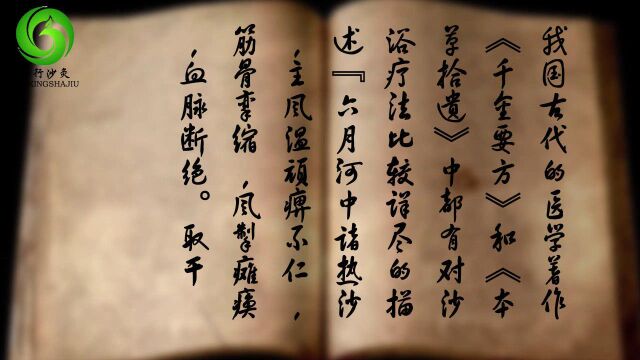 我国古代的医学著作
《千金要方》和《本
草拾遗》中都有对沙
浴疗法比较详尽的描
述『六月河中诸热沙
，主风温顽痹不仁，
筋骨挛缩，风掣瘫痪
，血脉断绝。取干
行沙灸
XINGSHAJIU